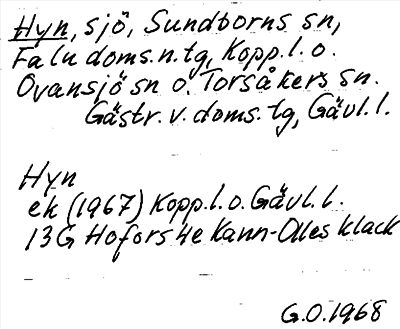 Hyn, sjö, Sundborns sn,
Falu doms.n.tg, Kopp.l. o.
Ovansjö sn o. Torsåkers sn.
Gästr.v.doms.tg, Gävl.l.
Hyn
ek (1967) Kopp.l.o. Gävl.l.
13G Hofors 4e Kann-Olles klack
G.O.1968